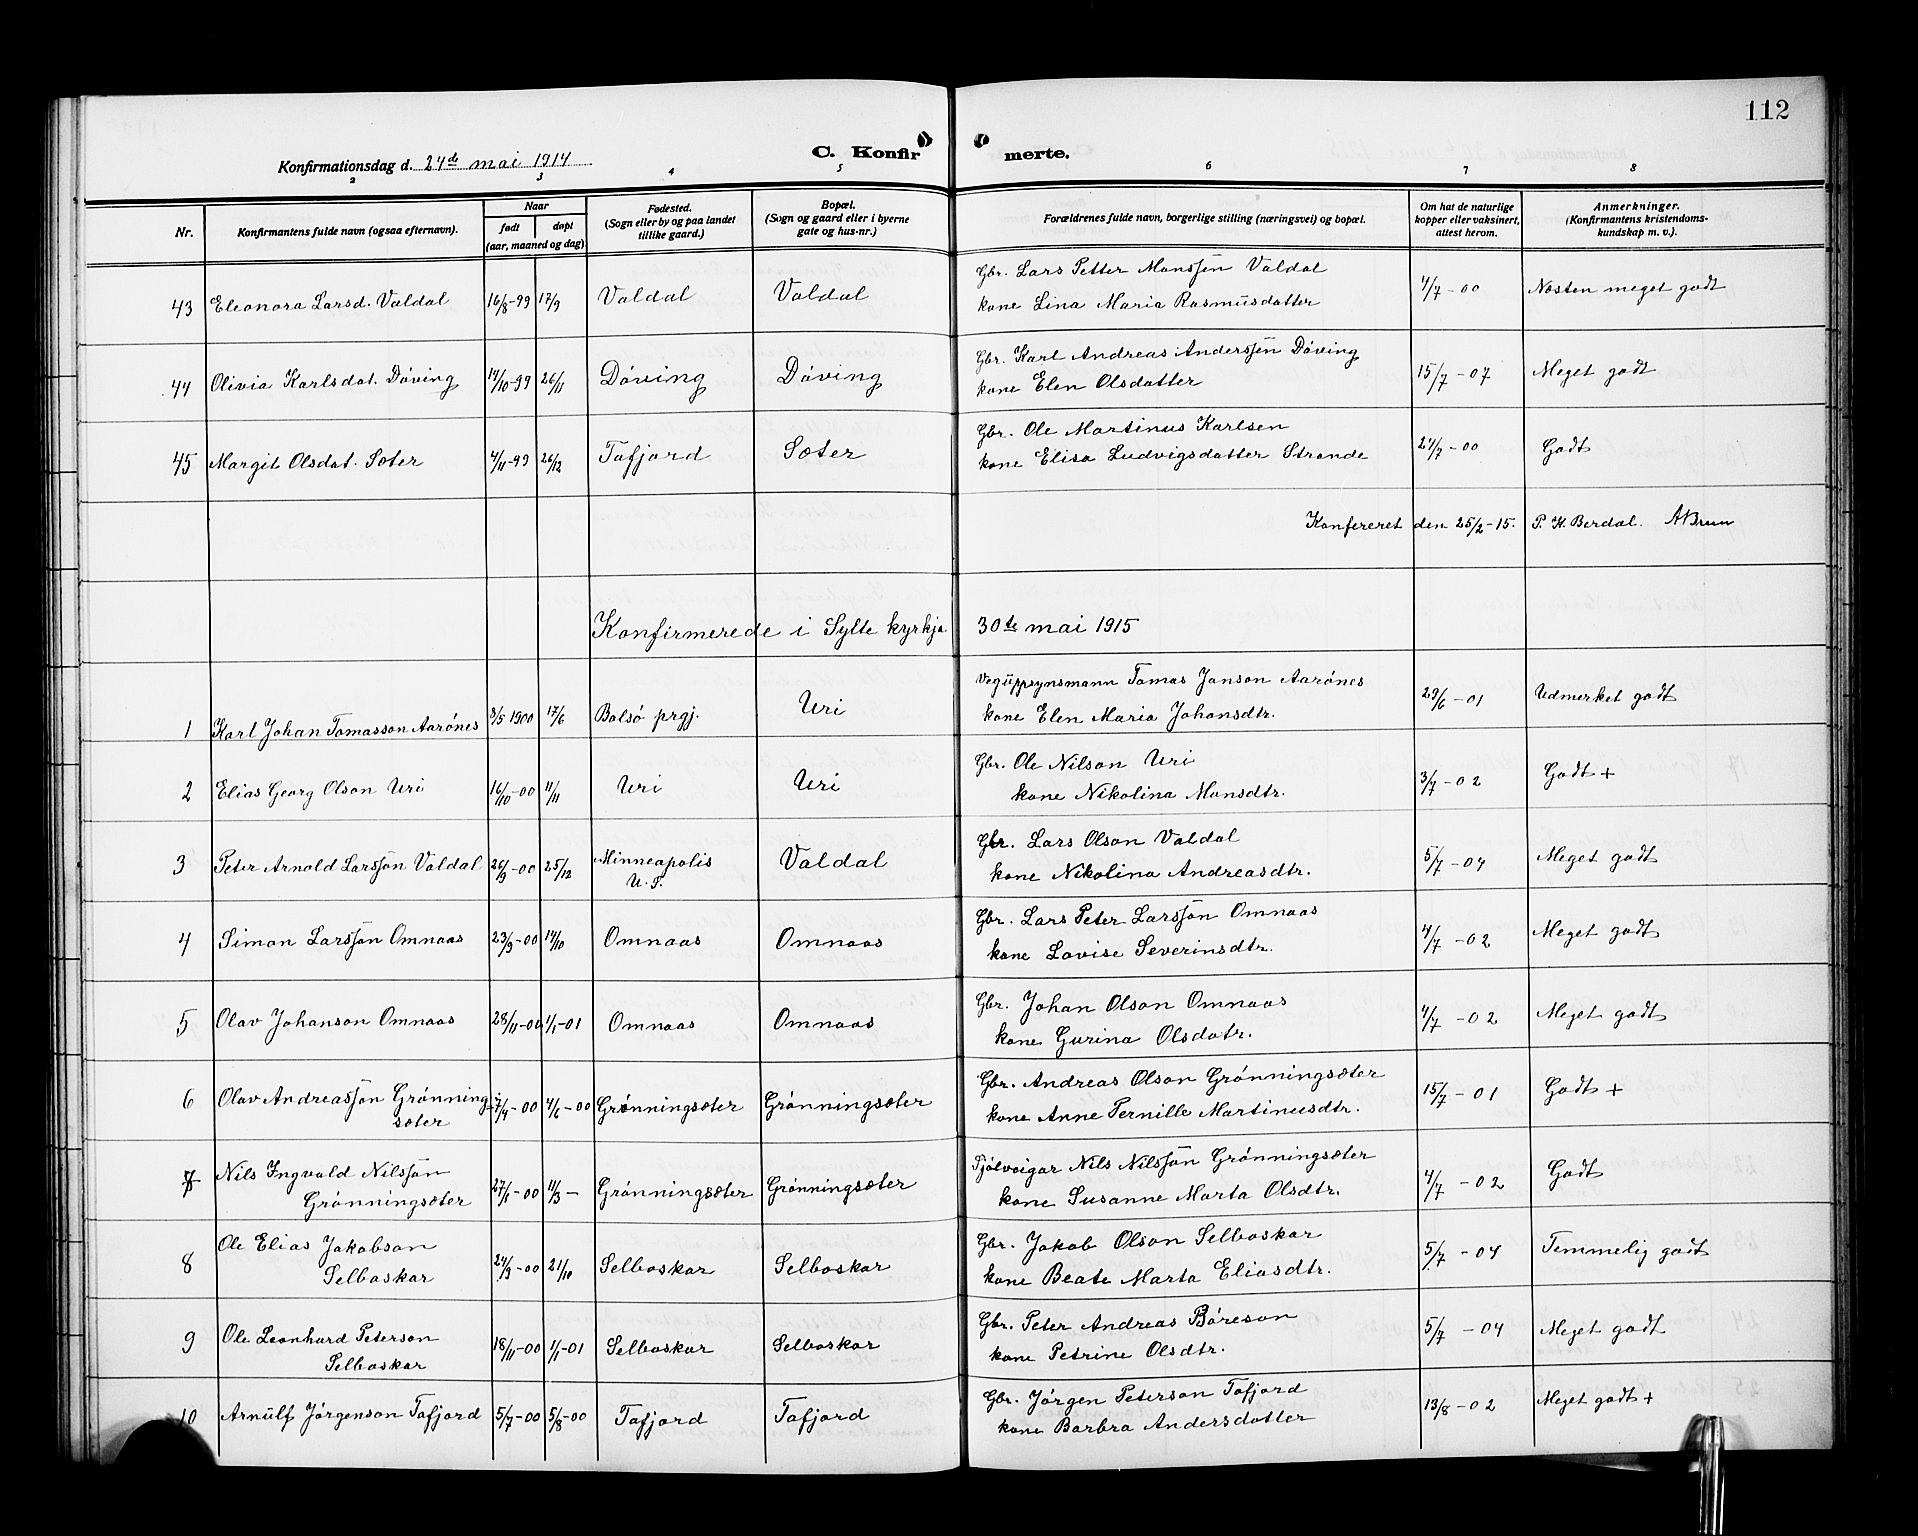 112
Konfirmationsdag d. 24de mai 1914
C. Konfirmerte.
2 3 4 5 6 7 8
Nr.
Konfirmantens fulde navn (ogsaa efternavn).
Naar
født
døpt
(aar, maaned og dag)
Fødested.
(Sogn eller by og paa landet
tillike gaard.)
Bopæl.
(Sogn og gaard eller i byerne
gate og hus-nr.)
Forældrenes fulde navn, borgerlige stilling (næringsvei) og bopæl.
Om hat de naturlige
kopper eller vaksinert,
attest herom.
Anmerkninger.
(Konfirmantens kristendoms-
kundskap m. v.).
43 Eleonora Larsd. Valdal 16/8-99 17/9 Valdal Valdal Gbr. Lars Petter Monssøn Valdal 4/7-00 Næsten meget godt
kone Lina Maria Rasmusdatter
44 Olivia Karlsdat. Døving 14/10-99 26/11 Døving Døving Gbr. Karl Andreas Anderssøn Døving 15/7-07 Meget godt
kone Elen Olsdatter
45 Margit Olsdat. Sæter 4/11-99 26/12 Tafjord Sæter Gbr. Ole Martinus Karlsen 24/7-00 Godt
kone Elisa Ludvigsdatter Strande
Konfereret den 25/2-15. P. K. Berdal. ABruun
Konfirmerede i Sylte kyrkja 30te mai 1915
1 Karl Johan Tomasson Aarönes 8/5 1900 17/6 Bolsö prgj. Uri Veguppsynsmann Tomas Janson Aarönes 29/6-01 Udmerket godt
kone Elen Maria Johansdtr.
2 Elias Georg Olson Uri 16/10-00 11/11 Uri Uri Gbr. Ole Nilson Uri 3/7-02 Godt +
kone Nikolina Monsdtr.
3 Peter Arnold Larssøn Valdal 26/9-00 25/12 Minneapolis Valdal Gbr. Lars Olson Valdal 5/7-04 Meget godt
U. S. kone Nikolina Andreasdtr.
4 Simon Larssøn Omnaas 23/9-00 14/10 Omnaas Omnaas Gbr. Lars Peter Larssøn Omnaas 4/7-02 Meget godt
kone Lovise Severinsdtr.
5 Olav Johanson Omnaas 28/11-00 4/1-01 Omnaas Omnaas Gbr. Johan Olson Omnaas 4/7-02 Meget godt
kone Gurina Olsdatr.
6 Olav Andreassøn Grønning- 7/4-00 4/6-00 Grønningsæter Grønningsæter Gbr. Andreas Olson Grønningsæter 15/7-01 Godt +
sæter kone Anne Pernille Martinusdtr.
7 Nils Ingvald Nilssøn 27/1-00 11/3- Grønningsæter Grønningsæter Sjölveigar Nils Nilssøn Grønningsæter 4/7-02 Godt
Grønningsæter kone Susanne Marta Olsdtr.
8 Ole Elias Jakobson 24/9-00 21/10 Selboskar Selboskar Gbr. Jakob Olson Selboskar 5/7-04 Temmelig godt
Selboskar kone Beate Marta Eliasdtr.
9 Ole Leonhard Peterson 18/11-00 1/1-01 Selboskar Selboskar Gbr. Peter Andreas Båreson 5/7-04 Meget godt
Selboskar kone Petrine Olsdtr.
10 Arnulf Jørgenson Tafjord 5/7-00 5/8-00 Tafjord Tafjord Gbr. Jørgen Peterson Tafjord 13/8-02 Meget godt +
kone Barbra Andersdatter